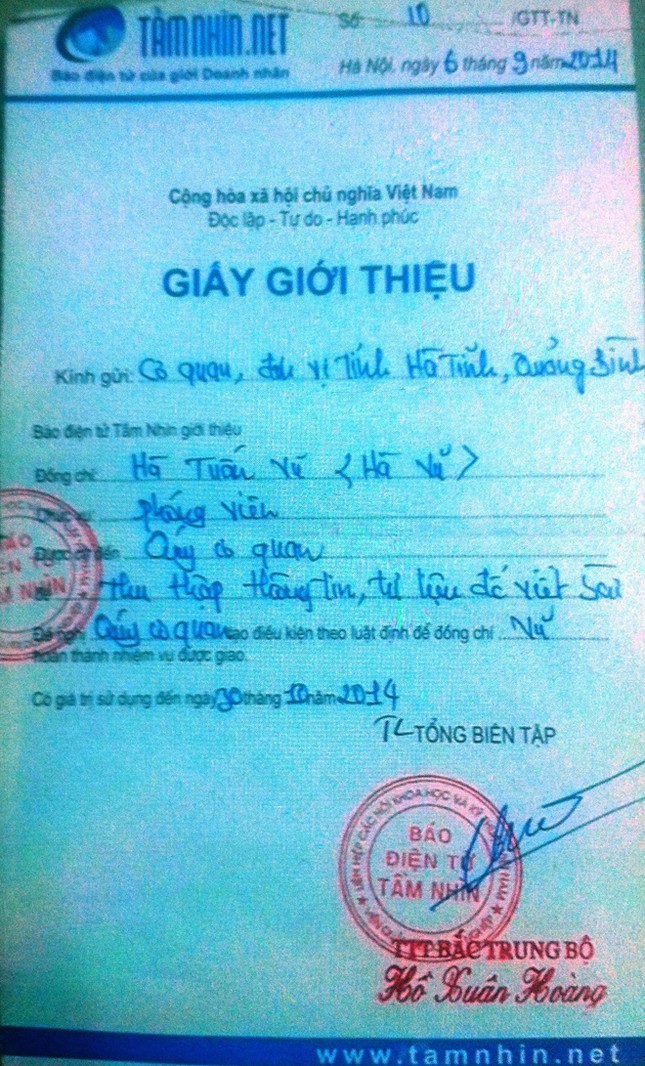 TẦMNHÌN.NET
Báo điện tử của giới Doanh nhân
Số: 10 /GTT-TN
Hà Nội, ngày 6 tháng 9 năm 2014
Cộng hòa xã hội chủ nghĩa Việt Nam
Độc lập - Tự do - Hạnh phúc
GIẤY GIỚI THIỆU
Kính gửi: Cơ quan, đơn vị tỉnh Hà Tĩnh, Quảng Bình
Báo điện tử Tầm Nhìn giới thiệu
Đồng chí: Hà Tuấn Vũ <Hà Vũ>
phóng viên
Được cử đến Qúy cơ quan
thu thập thông tin, tư liệu để viết bài
Đề nghị Qúy cơ quan tạo điều kiện theo luật định để đồng chí Vũ
hoàn thành nhiệm vụ được giao.
Có giá trị sử dụng đến ngày 30 tháng 10 năm 2014
TL TỔNG BIÊN TẬP
BÁO
ĐIỆN TỬ
TẦM NHÌN
TTT BẮC TRUNG BỘ
Hồ Xuân Hoàng
www.tamnhin.net